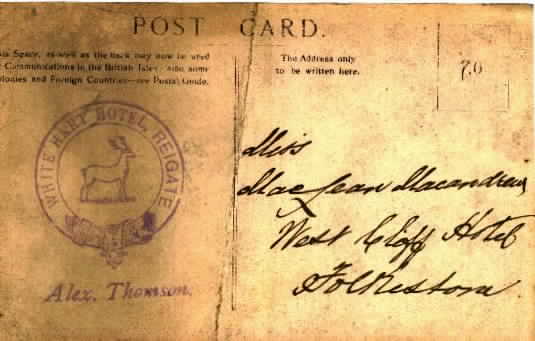 POST CARD.
This Space, as well as the back may now be used
for Communications in the British Isles, also some
Colonies and Foreign Countries—see Postal Guide.
The Address only
to be written here.
7.0
WHITE HART HOTEL, REIGATE
Alex. Thomson.
Miss
MacJean Macandrew
West Cliff Hotel
Folkestone